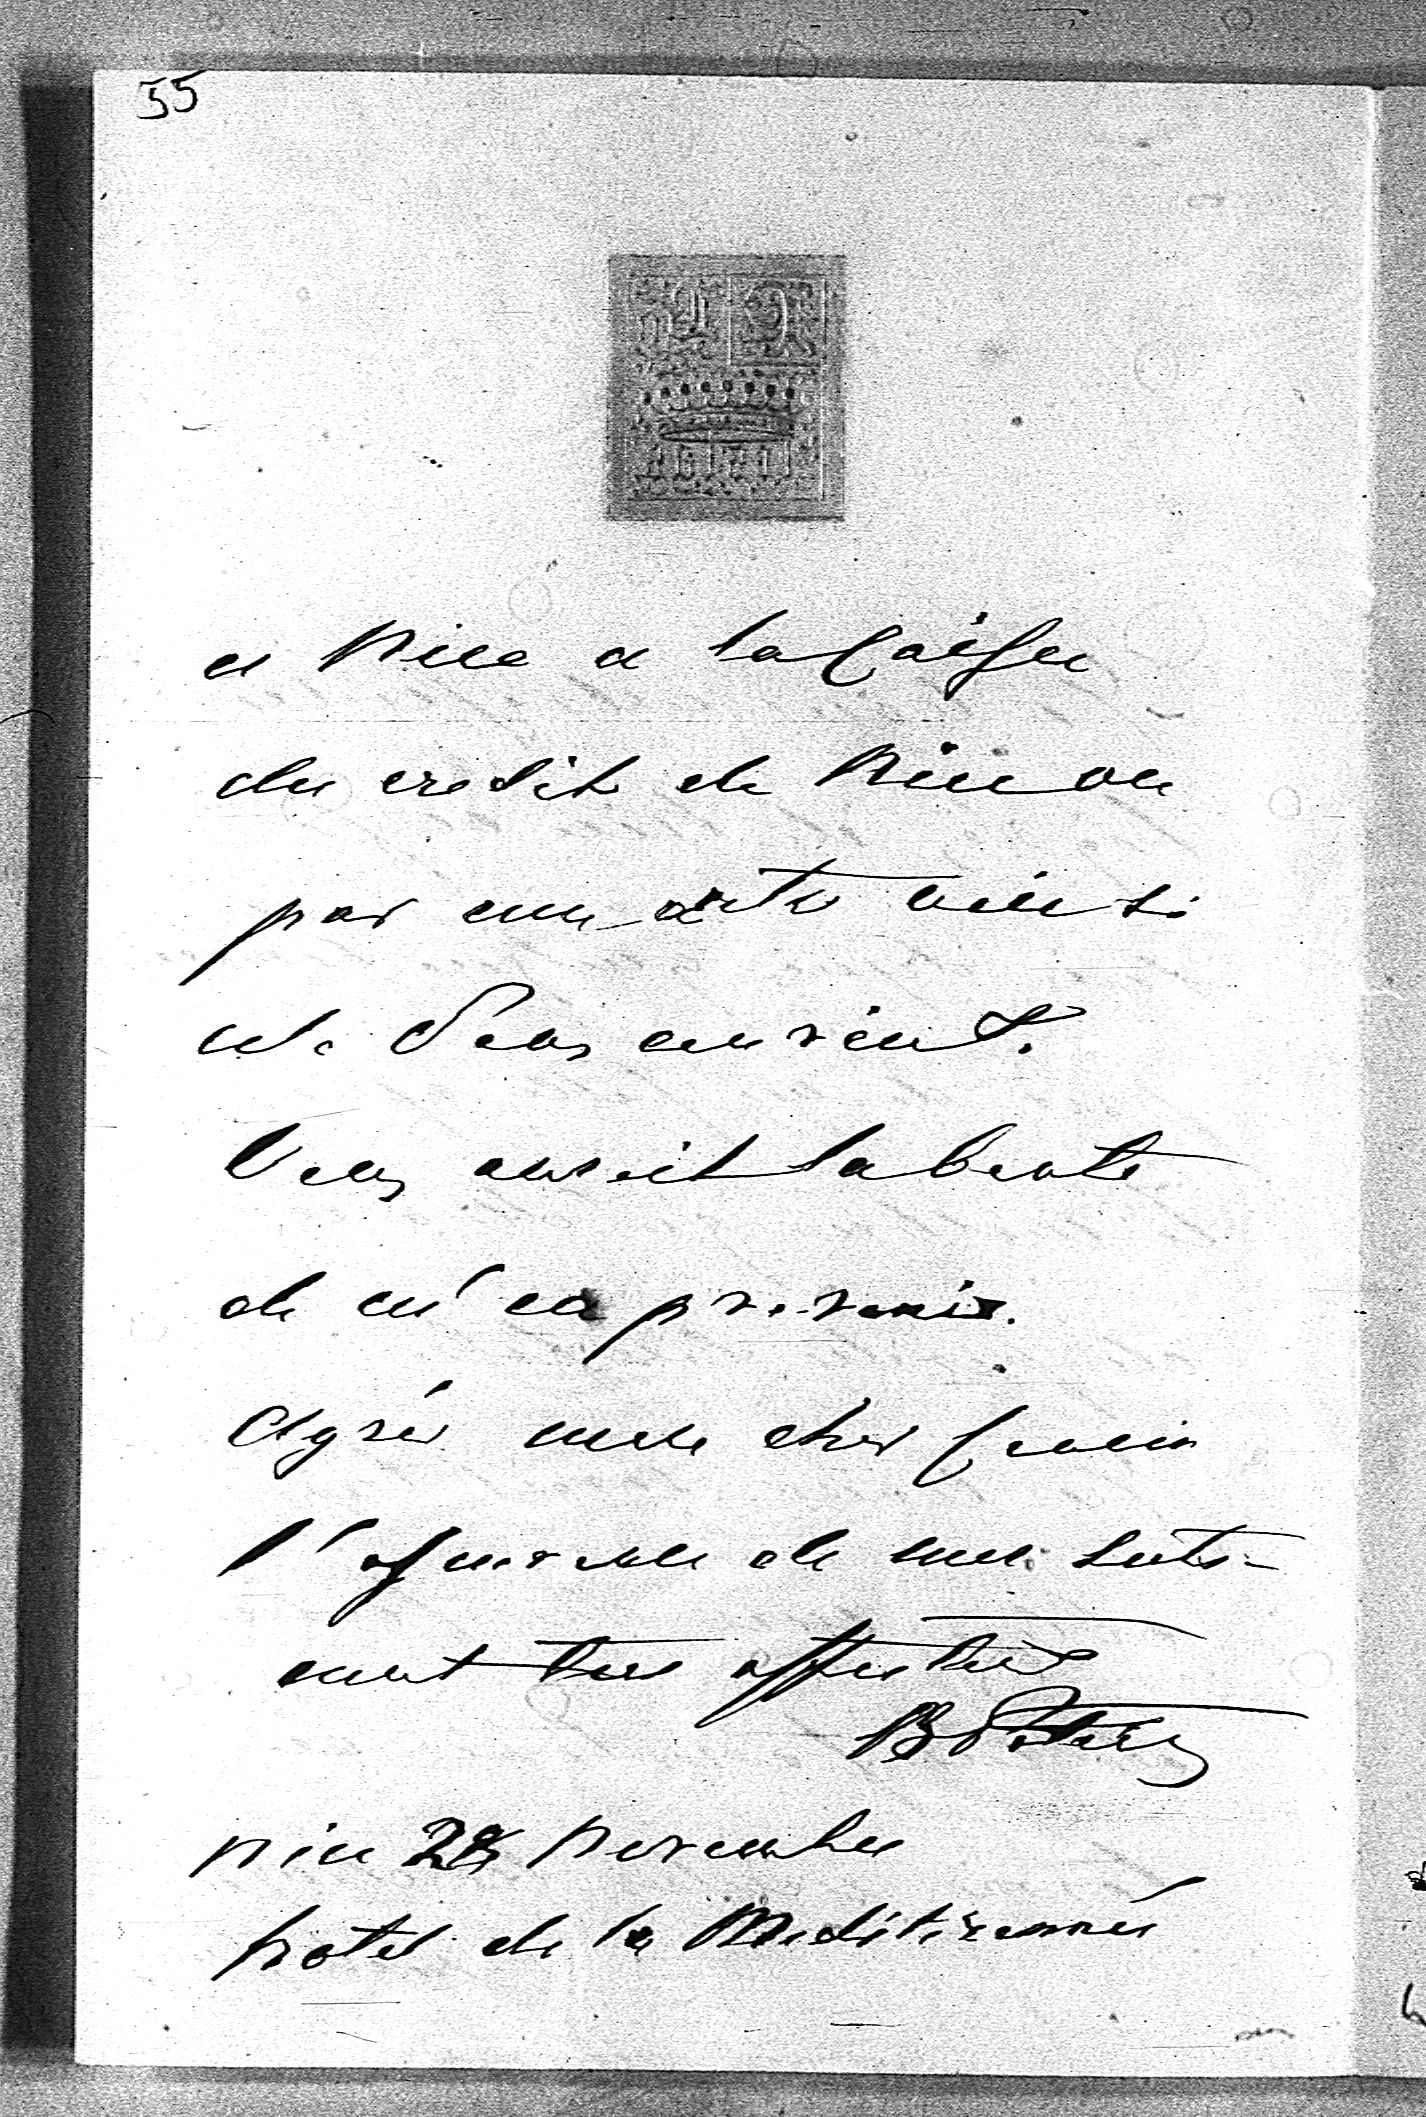 55
a Nice a la Caisse
du credit de Nice ou
par une autre voie si
cela vous convient.
Vous aurait la bonté
de m'en prevenir.
Agréé mon cher Cousin
l'assurance de mes senti-
ment tres affectueux
Nice 28 Novembre
hotel de la Mediterannée